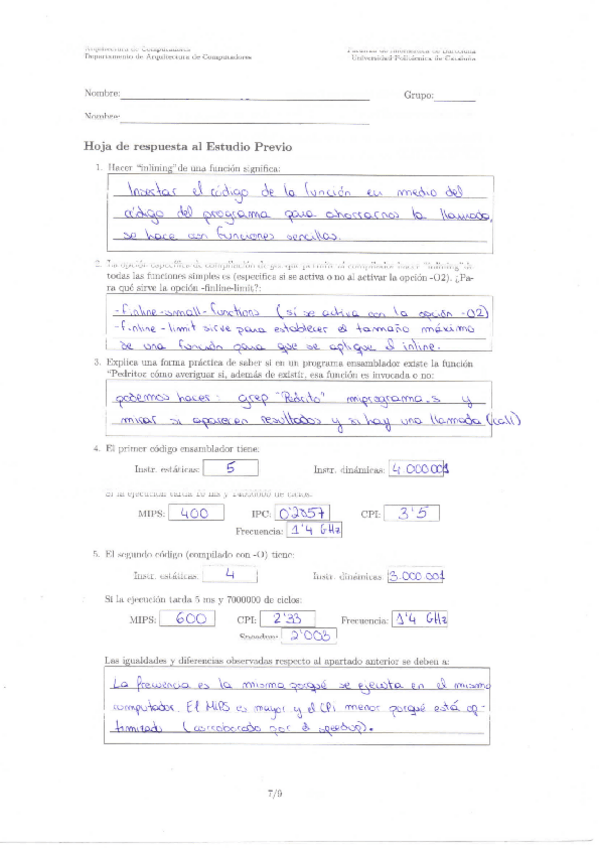 Arquitectura de Computadores
Departamento de Arquitectura de Computadores
Facultad de Informática de Barcelona
Universidad Politécnica de Cataluña
Nombre:
Grupo:
Nombre:
Hoja de respuesta al Estudio Previo
1. Hacer "inlining" de una función significa:
Insertar el código de la función en medio del
código del programa para ahorrarnos la llamada,
se hace con funciones sencillas.
2. La opción específica de compilación de gcc que permite al compilador hacer "inlining" de
todas las funciones simples es (especifica si se activa o no al activar la opción -O2). ¿Pa-
ra qué sirve la opción -finline-limit?:
-finline-small-functions (sí se activa con la opción -O2)
-finline-limit sirve para establecer el tamaño máximo
de una función para que se aplique el inline.
3. Explica una forma práctica de saber si en un programa ensamblador existe la función
"Pedrito y cómo averiguar si, además de existir, esa función es invocada o no:
podemos hacer: grep "Pedrito" miprograma.s y
mirar si aparecen resultados y si hay una llamada (call)
4. El primer código ensamblador tiene:
Instr. estáticas: 5 Instr. dinámicas: 4.000001
Si la ejecución tarda 10 ms y 14000000 de ciclos:
MIPS: 400 IPC: 0'2857 CPI: 3'5
Frecuencia: 1'4 GHz
5. El segundo código (compilado con -O) tiene:
Instr. estáticas: 4 Instr. dinámicas 3.000001
Si la ejecución tarda 5 ms y 7000000 de ciclos:
MIPS: 600 CPI: 2'33 Frecuencia: 1'4 GHz
Speedup: 2'003
Las igualdades y diferencias observadas respecto al apartado anterior se deben a:
La frecuencia es la misma porqué se ejecuta en el mismo
computador. El MIPS es mayor y el CPI menor porqué está op-
timizado (corroborado por el speedup).
7/9